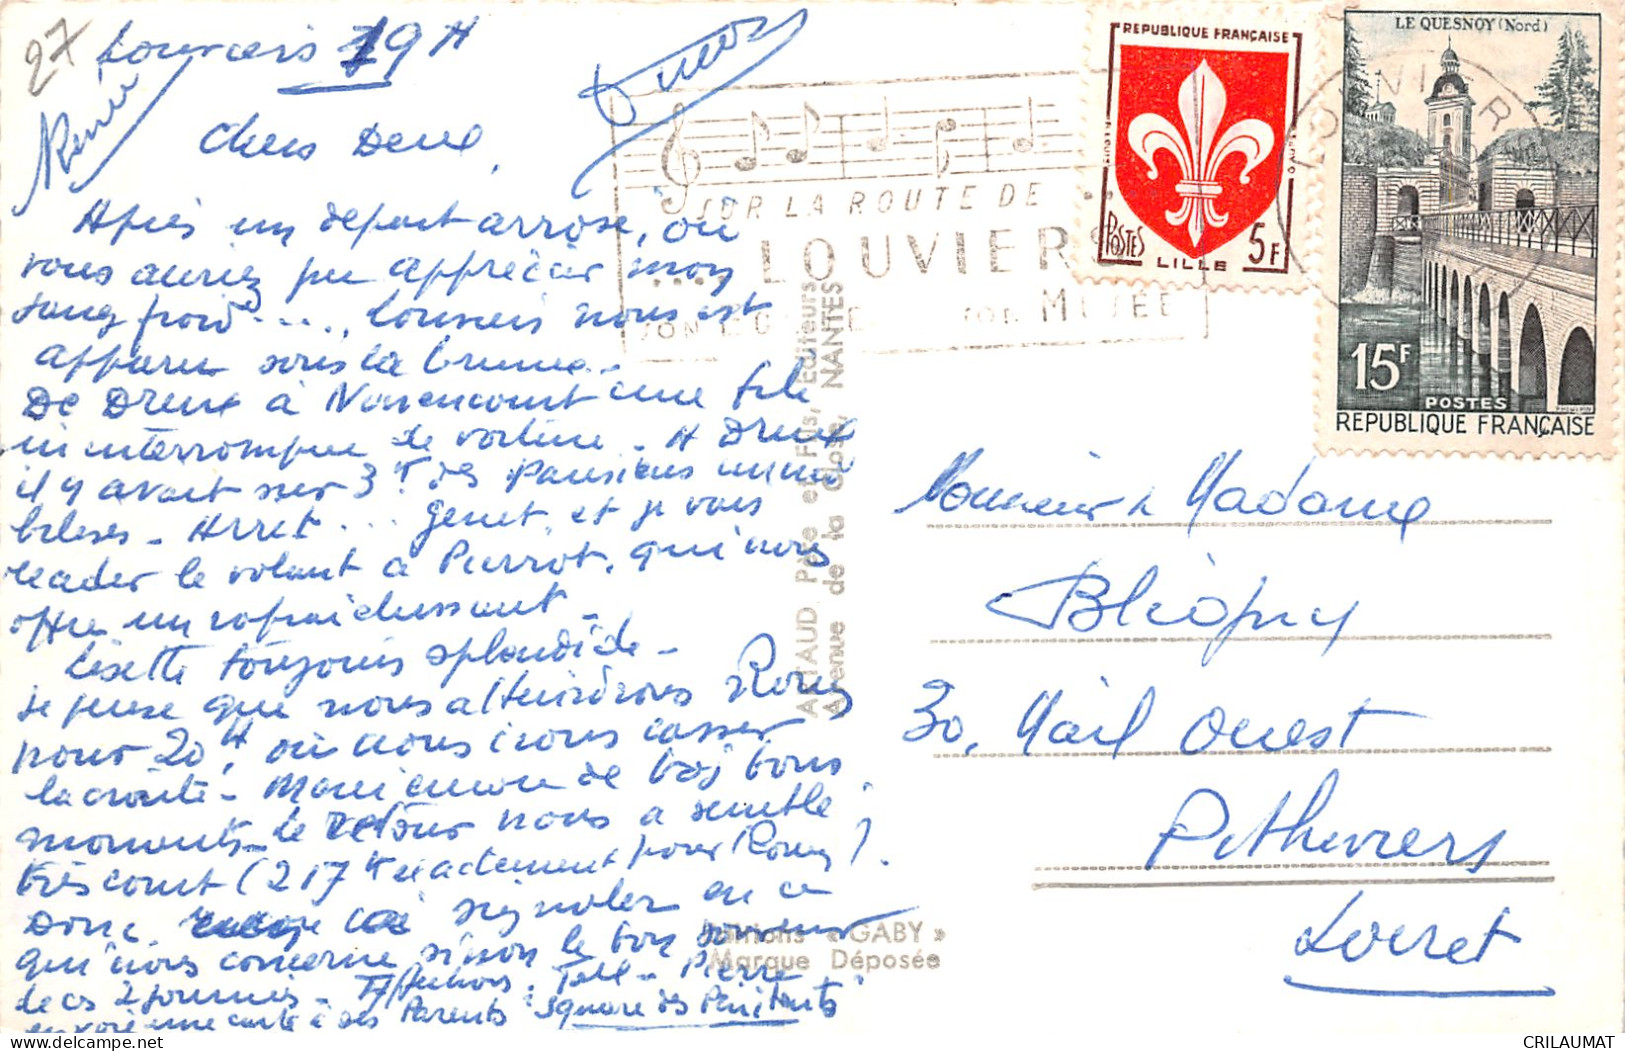 27
Louviers 19 H
Chers Deux,
Après un départ arrosé, où
vous auriez pu apprécier mon
sang froid ...., Louviers nous est
apparu sous la brume.
De Dreux à Nonancourt une file
ininterrompue de voitures. A Dreux
il y avait sur 3 des Parisiens
blessés. Arret ... genet, et je vais
le volant à Pierrot, qui nous
offre un rafraichissant
Lisette toujours splendide.
je pense que nous atteindrons Rouen
pour 20H, où nous irons casser
la croûte. Merci encore de ces bons
moments. Le retour nous a semblé
très court (217 exactement pour Rouen).
Donc à signaler en ce
qui nous concerne sinon le bon souvenir
de ces 2 journées. Pierre
envoie une carte à ses Parents "Square des Pénitents"
SUR LA ROUTE DE
LOUVIERS
SON MUSÉE
REPUBLIQUE FRANÇAISE
POSTES
LILLE
5F
LE QUESNOY (Nord)
LOUVIERS
15F
POSTES
REPUBLIQUE FRANÇAISE
ARTAUD Père et Fils, Éditeurs
Avenue de la Close, NANTES
Editions « GABY »
Marque Déposée
Monsieur & Madame
30, Mail Ouest
Pithiviers
Loiret
CRILAUMAT